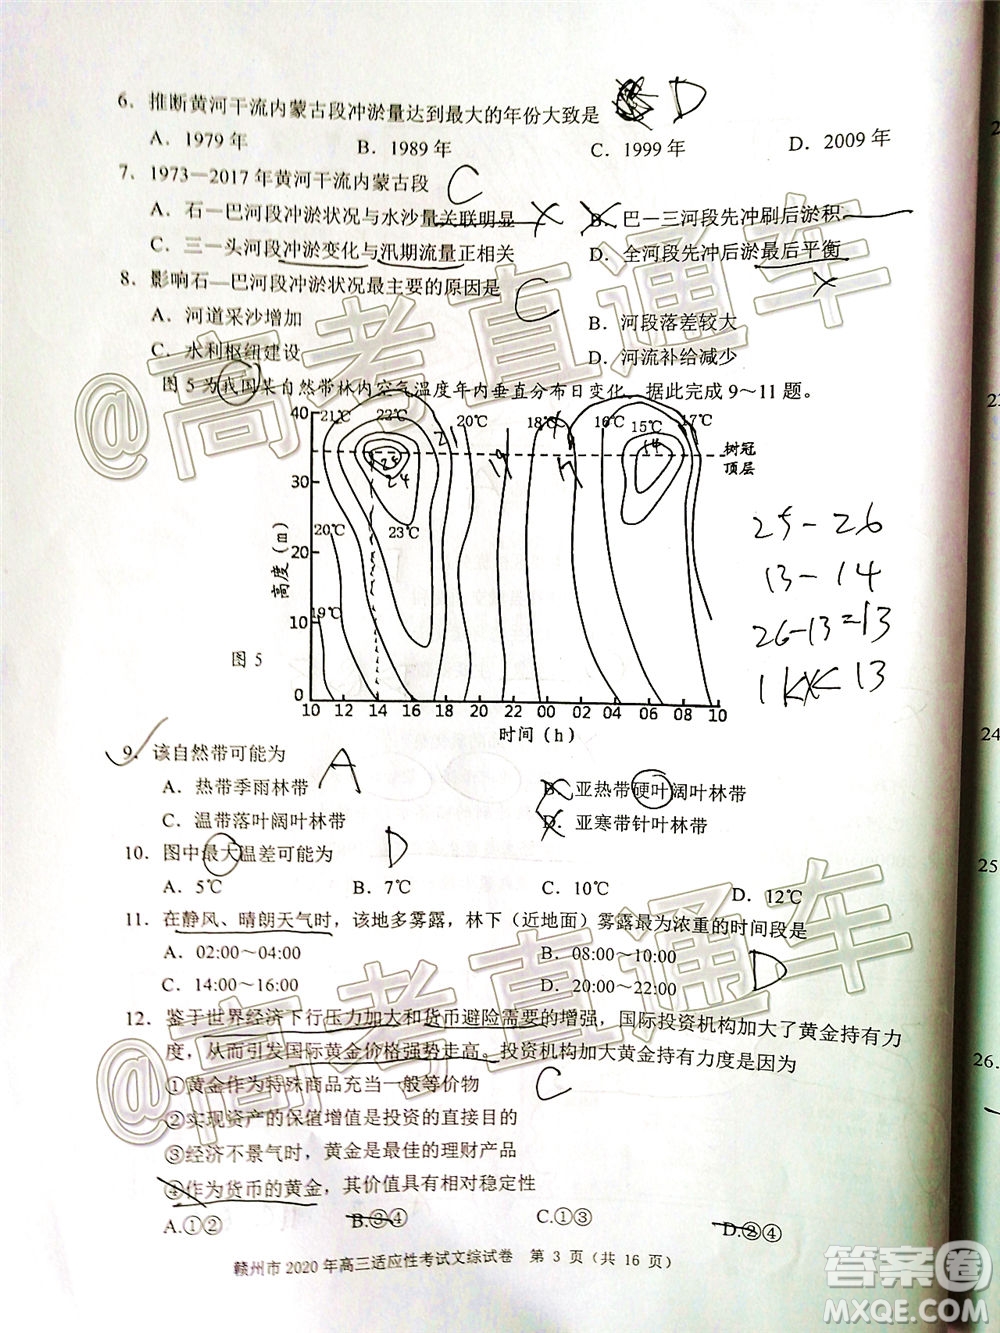 6．推断黄河干流内蒙古段冲淤量达到最大的年份大致是 D
A．1979 年 B．1989 年 C．1999 年 D．2009 年
7．1973—2017 年黄河干流内蒙古段 C
A．石—巴河段冲淤状况与水沙量关联明显 B．巴—三河段先冲刷后淤积
C．三—头河段冲淤变化与汛期流量正相关 D．全河段先冲后淤最后平衡
8．影响石—巴河段冲淤状况最主要的原因是 C
A．河道采沙增加 B．河段落差较大
C．水利枢纽建设 D．河流补给减少
图 5 为我国某自然带林内空气温度年内垂直分布日变化。据此完成 9～11 题。
40 21℃ 22℃ 20℃ 18℃ 16℃ 15℃ 17℃
21 14
树冠
顶层
25 19 17
24
30
23℃
20℃
20
高度(m)
19℃
10
0
图 5
10 12 14 16 18 20 22 00 02 04 06 08 10
时间（h）
25-26
13-14
26-13=13
13
9．该自然带可能为 A
A．热带季雨林带 B．亚热带硬叶阔叶林带
C．温带落叶阔叶林带 D．亚寒带针叶林带
10．图中最大温差可能为 D
A．5℃ B．7℃ C．10℃ D．12℃
11．在静风、晴朗天气时，该地多雾露，林下（近地面）雾露最为浓重的时间段是
A．02:00～04:00 B．08:00～10:00 D
C．14:00～16:00 D．20:00～22:00
12．鉴于世界经济下行压力加大和货币避险需要的增强，国际投资机构加大了黄金持有力
度，从而引发国际黄金价格强势走高。投资机构加大黄金持有力度是因为
①黄金作为特殊商品充当一般等价物 C
②实现资产的保值增值是投资的直接目的
③经济不景气时，黄金是最佳的理财产品
④作为货币的黄金，其价值具有相对稳定性
A.①② B.③④ C.①③ D.②④
赣州市 2020 年高三适应性考试文综试卷 第 3 页（共 16 页）
24
25
26.
@高考直通车
@高考直通车
答案圈
MXQE.COM